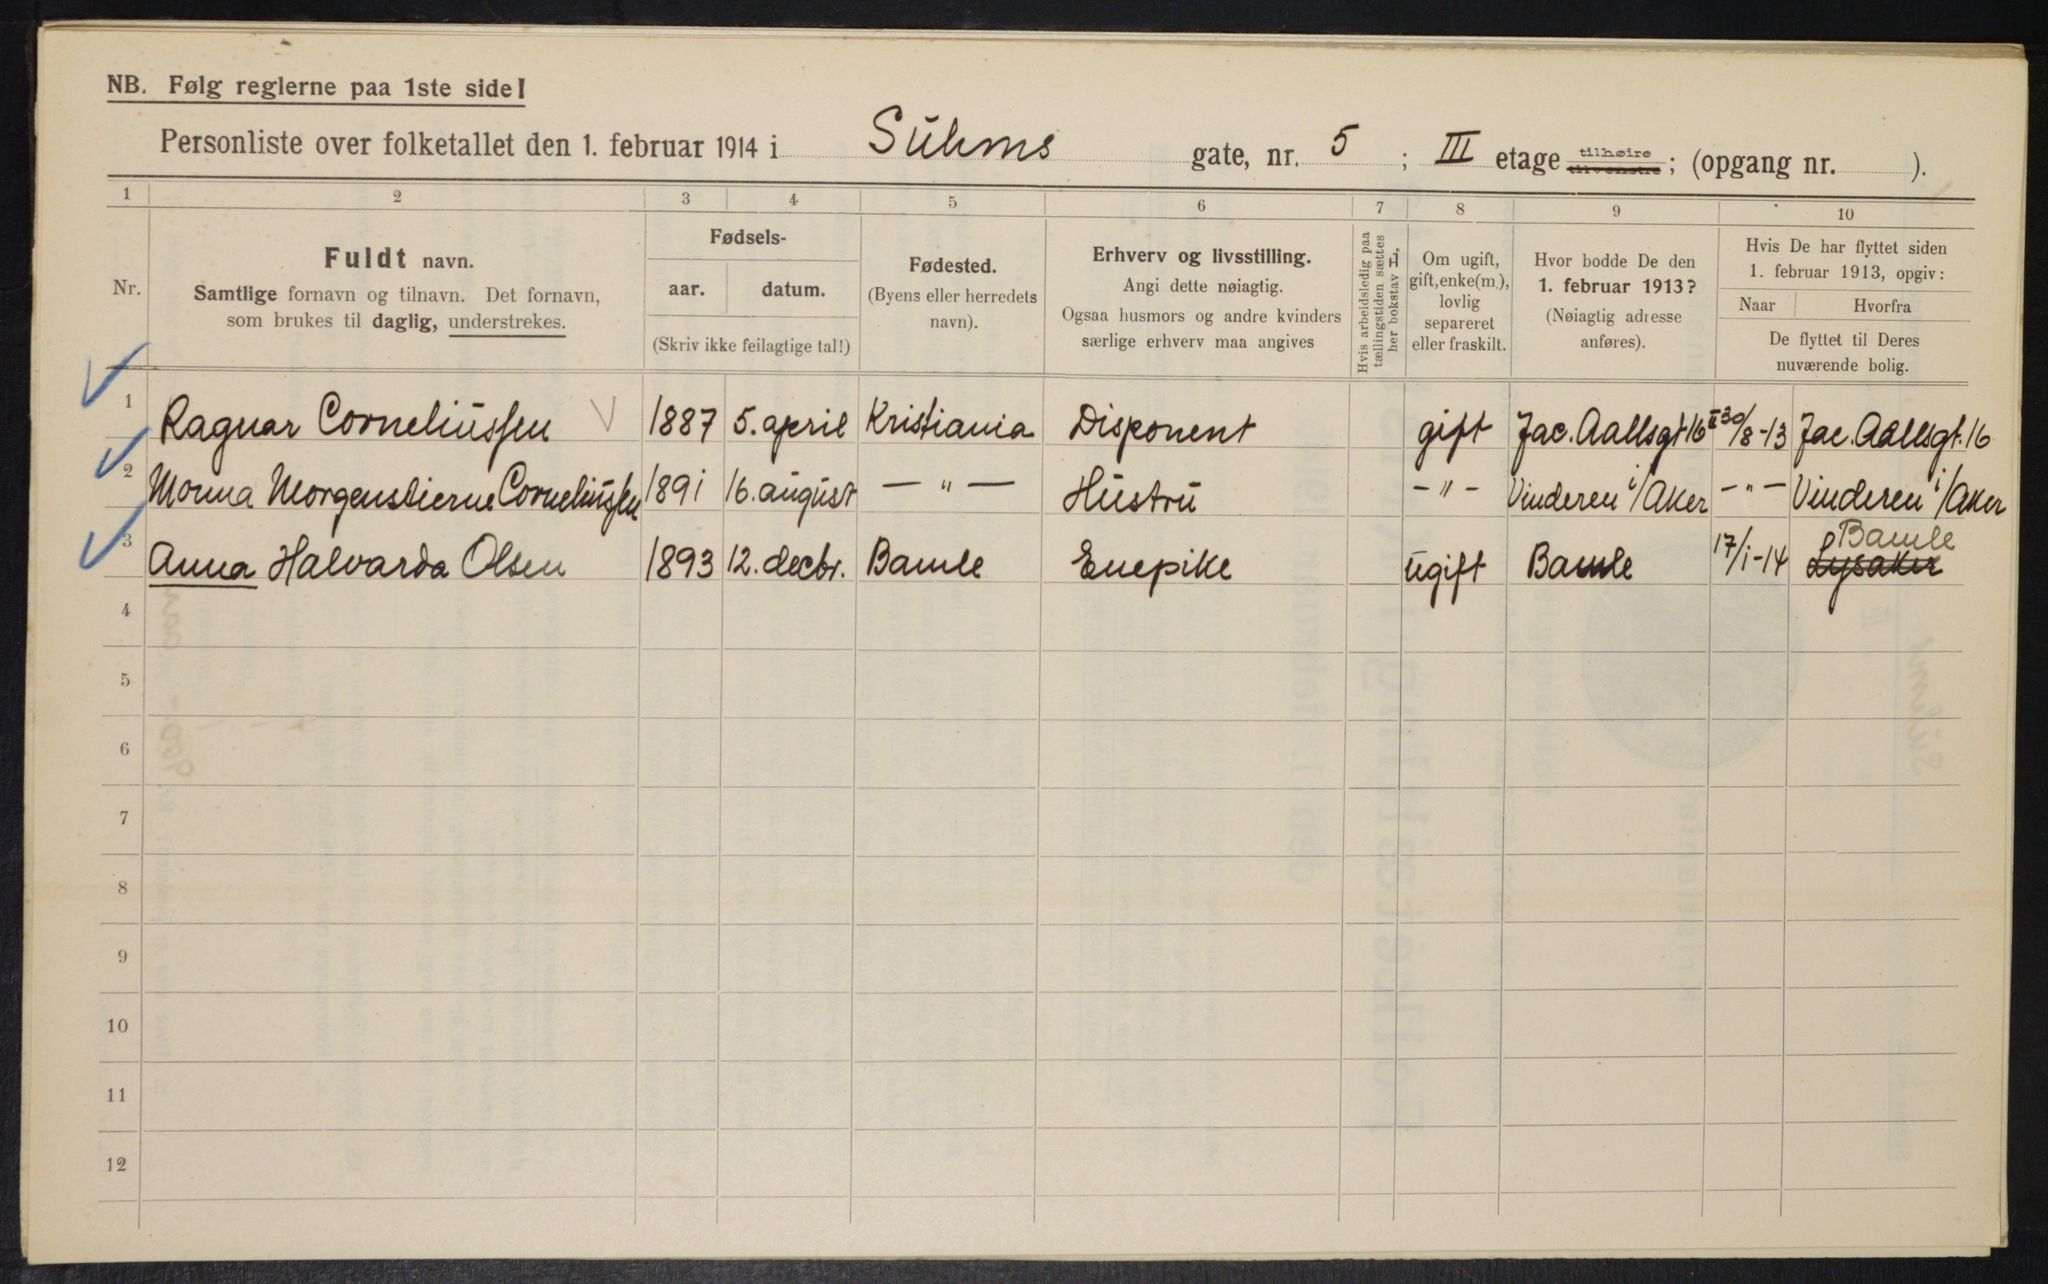 NB. Følg reglerne paa 1ste side!
Personliste over folketallet den 1. februar 1914 i Suhms gate, nr. 5 ; III etage tilhøire tilvenstre ; (opgang nr. ).
1 2 3 4 5 6 7 8 9 10
Nr.
Fuldt navn.
Samtlige fornavn og tilnavn. Det fornavn,
som brukes til daglig, understrekes.
Fødsels-
aar. datum.
(Skriv ikke feilagtige tal!)
Fødested.
(Byens eller herredets
navn).
Erhverv og livsstilling.
Angi dette nøiagtig.
Ogsaa husmors og andre kvinders
særlige erhverv maa angives
Hvis arbeidsledig paa
tællingstiden sættes
her bokstav L,
Om ugift,
gift, enke(m.),
lovlig
separeret
eller fraskilt.
Hvor bodde De den
1. februar 1913?
(Nøiagtig adresse
anføres).
Hvis De har flyttet siden
1. februar 1913, opgiv:
Naar Hvorfra
De flyttet til Deres
nuværende bolig.
1 Ragnar Corneliussen 1887 5. april Kristiania Disponent gift Jac. Aallsgt 16 II 30/8-13 Jac. Aallsgt. 16
2 Monna Morgenstierne Corneliussen 1891 16. august — " — Hustru - " - Vinderen i/Aker - " - Vinderen i/Aker
3 Anna Halvarda Olsen 1893 12. decbr. Bamle Enepike ugift Bamle 17/1-14 Bamle
Lysaker
4
5
6
7
8
9
10
11
12